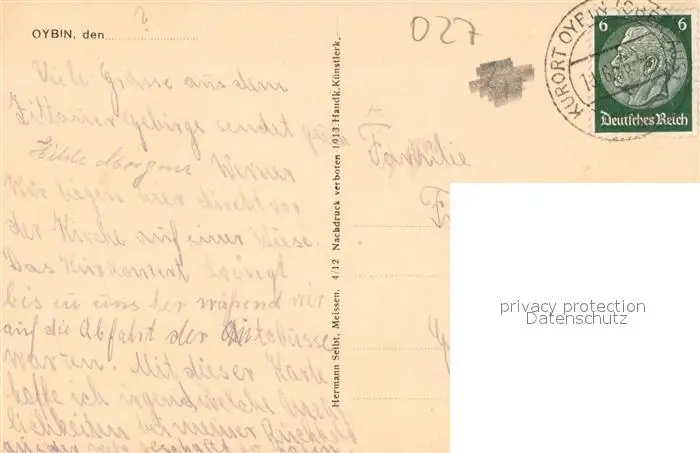 OYBIN, den
?
027
Viele Grüsse aus dem
Zittauer Gebirge sendet
Hilde Morgner Werner
Wir liegen hier direkt vor
der Kirche auf einer Wiese.
Das Kurkonzert klingt
bis zu uns her während wir
auf die Abfahrt der Autobusse
warten. Mit dieser Karte
hoffe ich irgendwelche
lichkeiten bei meiner
aus der Welt geschafft zu haben.
Hermann Seibt, Meissen. 4/12 Nachdruck verboten 1913 Handk.Künstlerk.
Familie
KURORT OYBIN
6 6
Deutsches Reich
privacy protection
Datenschutz